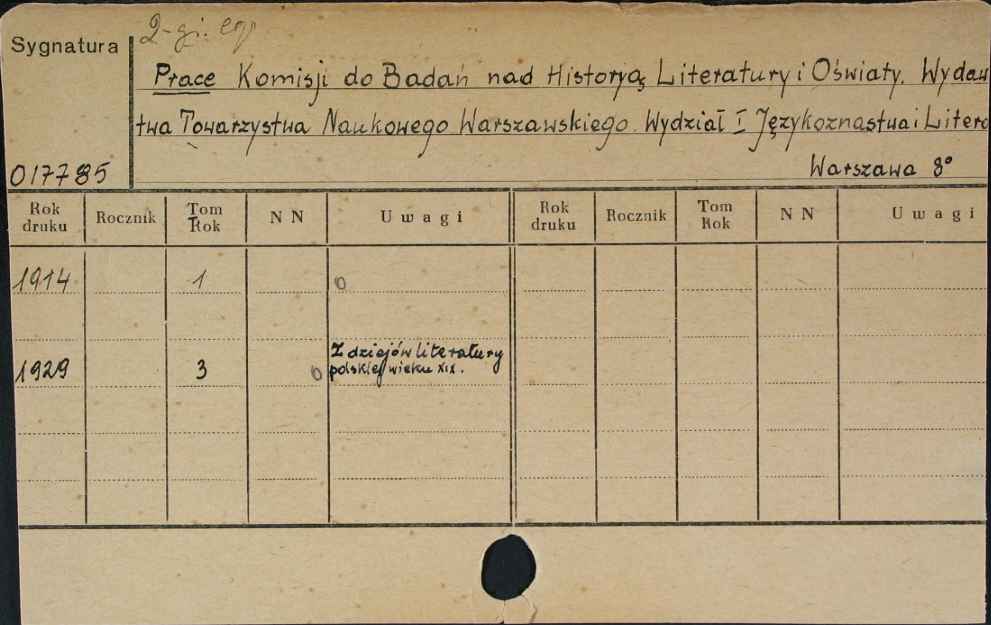 2-gi. egz
Sygnatura
Prace Komisji do Badań nad Historyą Literatury i Oświaty. Wydaw
twa Towarzystwa Naukowego Warszawskiego. Wydział I Językoznastwa i Litera
017785 Warszawa 8°
Rok druku Rocznik Tom Rok N N Uwagi Rok druku Rocznik Tom Rok N N Uwagi
1914 1 0
Z dziejów literatury
1929 3 0 polskiej wieku XIX.